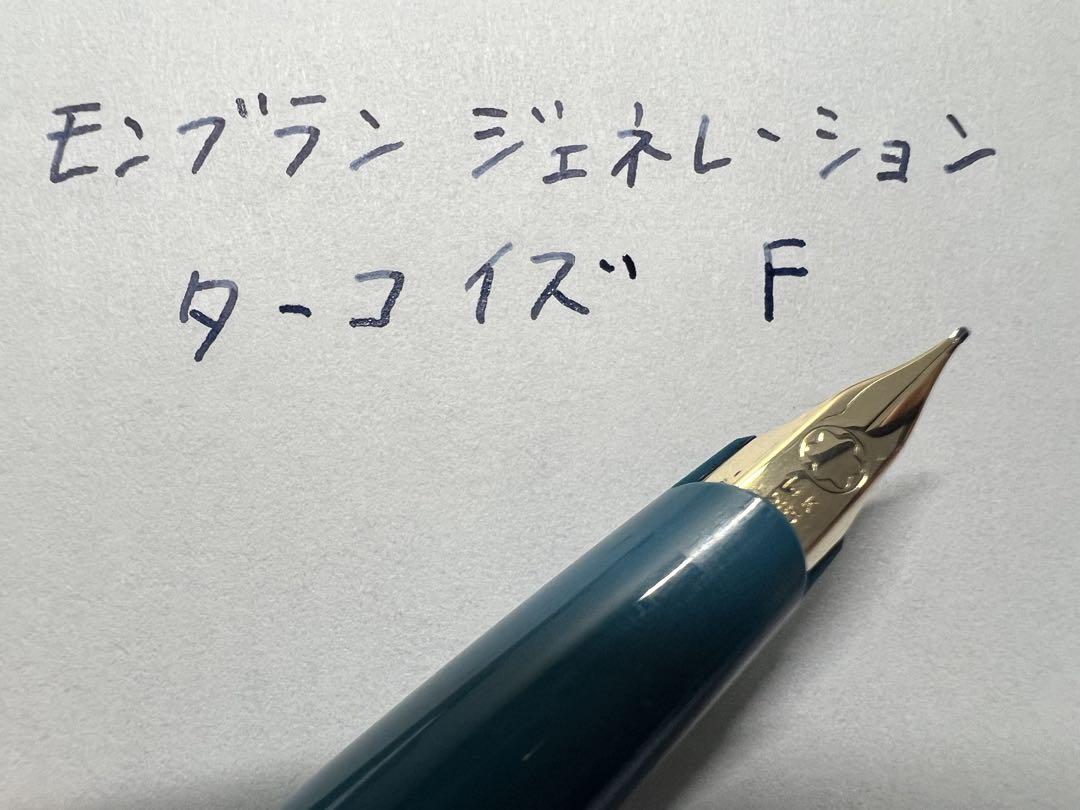 モンブラン ジェネレーション
ターコイズ F